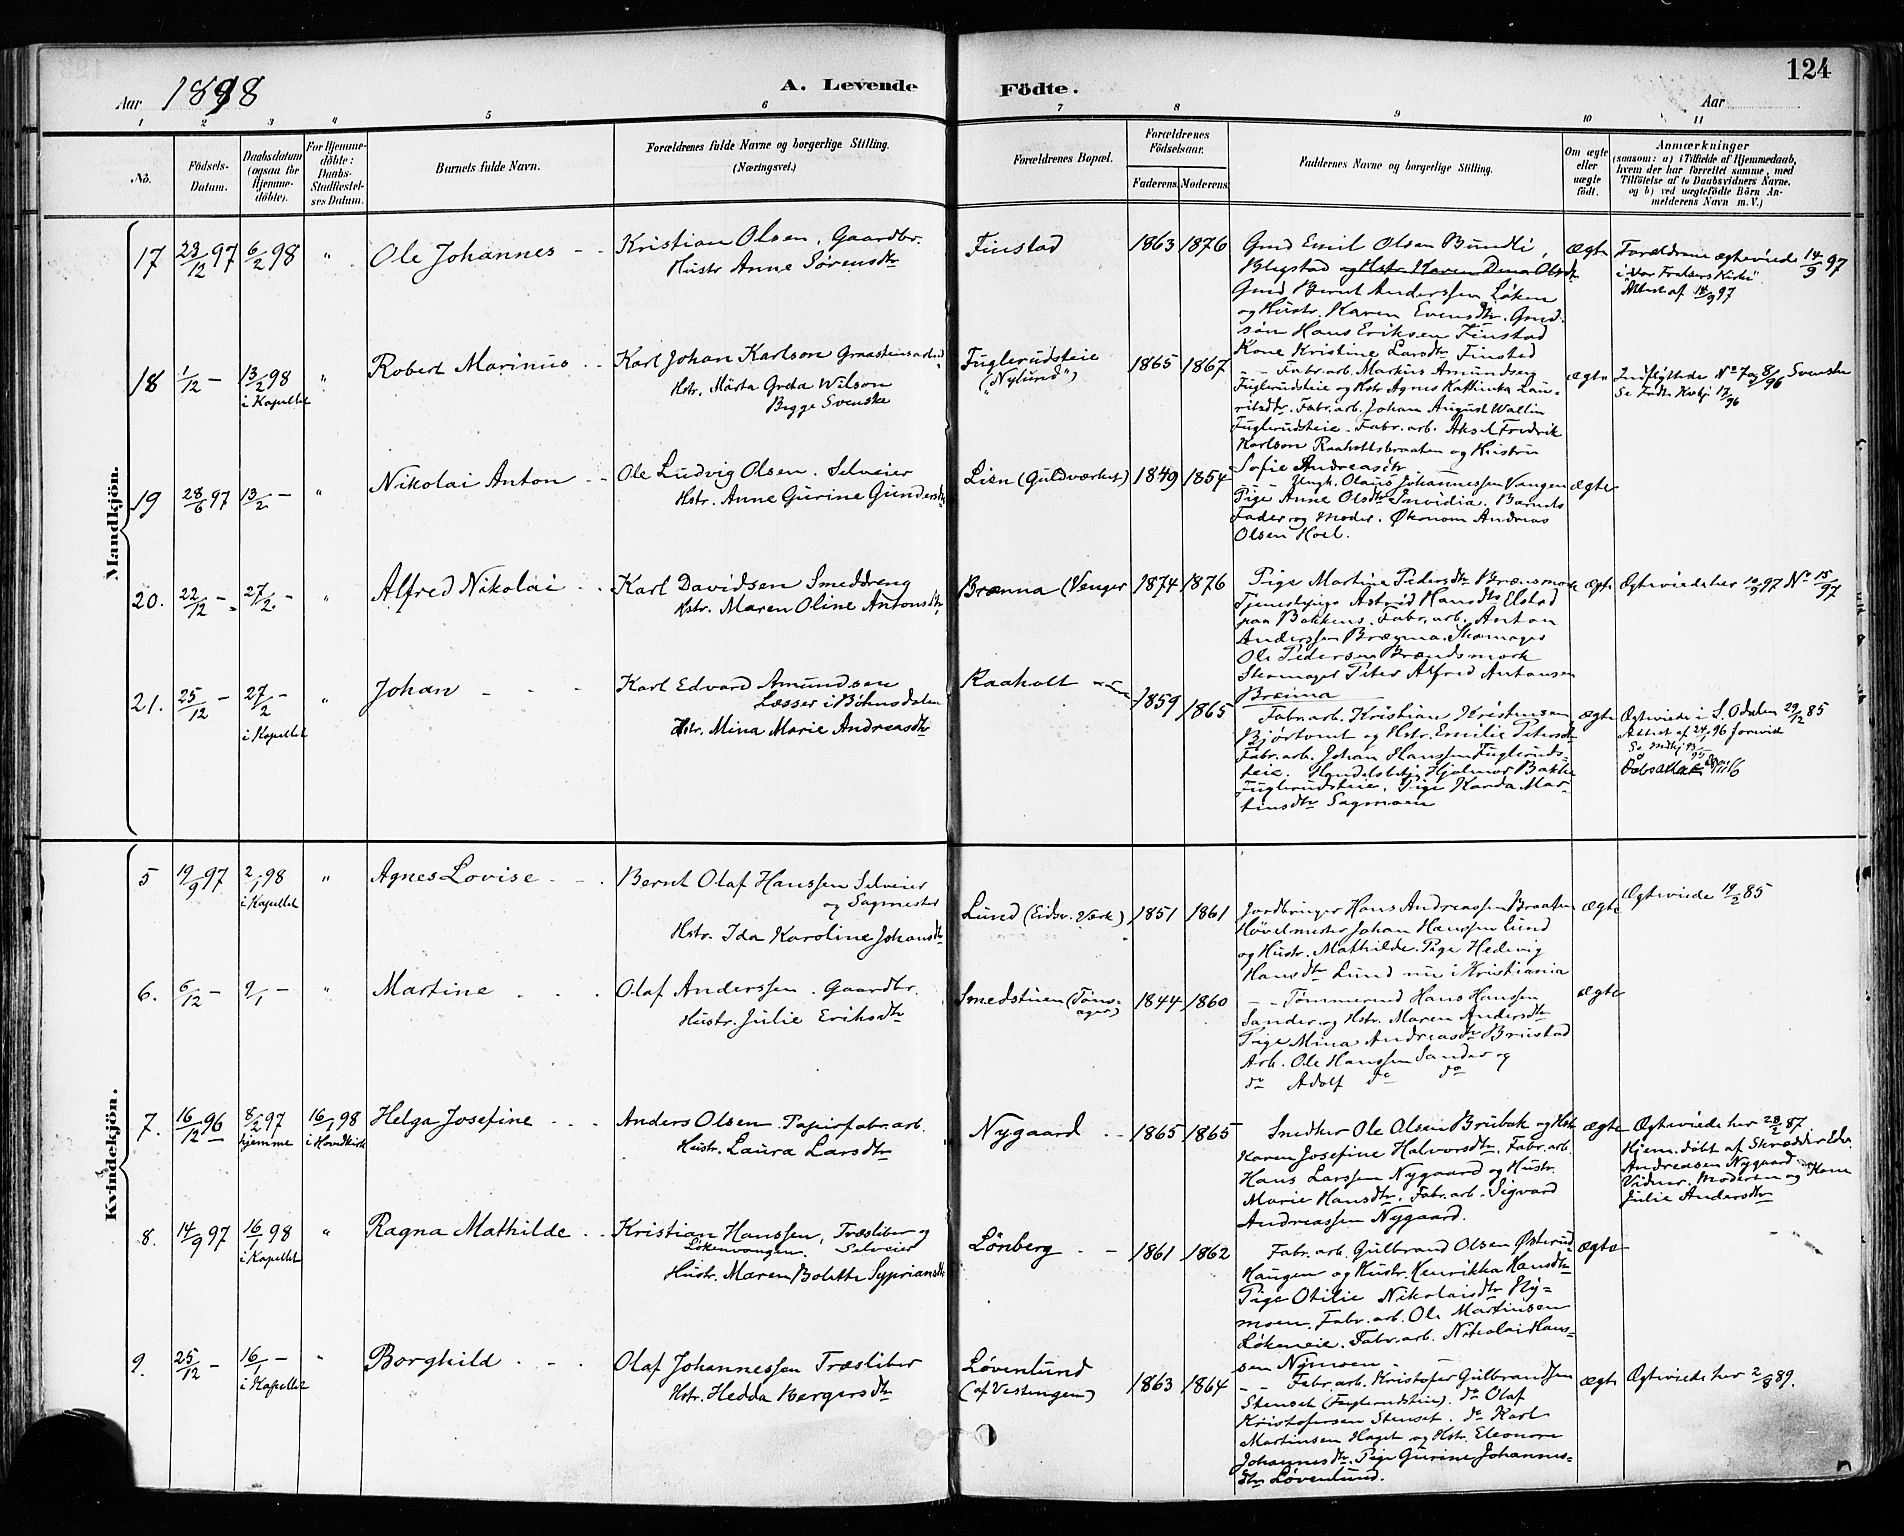 124
Aar 1898 A. Levende Födte. Aar
1 2 3 4 5 6 7 8 9 10 11
No.
Födsels-Datum.
Daabsdatum (ogsaa for Hjemme-döbte).
For Hjemme-döbte: Daabs-Stadfæstel-ses Datum.
Barnets fulde Navn.
Forældrenes fulde Navne og borgerlige Stilling.
(Næringsvei.)
Forældrenes Bopæl.
Forældrenes Födselsaar.
Faderens. Moderens.
Faddernes Navne og borgerlige Stilling.
Om ægte eller uægte födt.
Anmærkninger
(saasom: a) i Tilfælde af Hjemmedaab,
hvem der har forrettet samme, med
Tilföielse af to Daabsvidners Navne,
og b) ved uægtefödte Börn An-
melderens Navn m. V.)
Mandkjön.
17 23/12 97 6/2 98 " Ole Johannes
Kristian Olsen, Gaardbr.
Hustr Anne Sørensdtr
Finstad 1863 1876
Gmd Emil Olsen Bundli,
Blegstad og Hstr. Karen Dina Olsdtr
Gmd Bernt Anderssen Løken
og Hustr. Karen Evensdtr. Gmd.
søn Hans Eriksen Finstad
Kone Kristine Larsdtr Finstad
ægte
Forældrene ægteviede 14/9 97
i "Vor Frelsers Kirke"
Attest af 14/9 97
18 1/12 - 13/2 98 i Kapellet " Robert Marinus
Karl Johan Karlson Graastensarbeid
Hstr. Märta Greta Wilson
Begge Svenske
Fuglerudsteie
("Nylund") 1865 1867
Fabr.arb. Markus Amundsen
Fuglerudsteie og Hstr Agnes Kathinka Lau-
ritsdtr. Fabr.arb. Johan August Wallin
Fuglerudsteie. Fabr. arb. Aksel Fredrik
Karlson Raaholtsbraaten og Hustru
Sofie Andreasdtr
ægte
Indflyttede No 7 og 8/96 Svenske
Se Fødte Kvkj 17/96
19 28/6 97 13/2 - " Nikolai Anton
Ole Ludvig Olsen. Selveier
Hstr. Anne Gurine Gundersdtr
Lien (Guldværket) 1849 1854
Ungk. Olaus Johannessen Vangen
Pige Anne Olsdtr Invidia. Barnets
Fader og Moder. Økonom Andreas
Olsen Hoel.
ægte
20. 22/12 - 27/2 - " Alfred Nikolai
Karl Davidsen Smeddreng
Hstr. Maren Oline Antonsdtr
Brænna (Venger 1874 1876
Pige Martine Pedersdtr Brænsmor
Tjenestepige Astrid Hansdtr Elstad
paa Bakkens. Fabr. arb. Anton
Anderssen Brænna. Skomager
Ole Pedersen Brændsmork
Skomager Peter Alfred Antonsen
Brænna
ægte
Ægteviede her 10/9 97 No 15/97
21. 25/12 - 27/2 - i Kapellet " Johan
Karl Edvard Amundsen
Læsser i Bøhnsdalen
Hstr. Mina Marie Andreasdtr
Raaholt 1859 1865
Fabr.arb. Kristian Kristensen
Bjørtomt og Hstr. Emilie Petersdtr
Fabr.arb. Johan Hanssen Fugleruds-
teie. Handelsbetj. Hjalmar Bakke
Fuglerudsteie. Pige Karda Mar-
tinsdtr Sagmoen
ægte
Ægteviede i S. Odalen 29/12 85
Kvindekjön.
5 19/9 97 2/1 98 i Kapellet " Agnes Lovise
Bernt Olaf Hanssen Selveier
og Sagmester
Hstr. Ida Karoline Johansdtr
Lund (Eidsv. Værk) 1851 1861
Jordbruger Hans Andreassen Braaten
Høvelmester Johan Hanssen Lund
og Hustr. Mathilde. Pige Hedevig
Hansdtr Lund nu i Kristiania
ægte
Ægteviede 19/2 85
6. 6/12 - 9/1 - " Martine
Olaf Anderssen. Gaardbr.
Hustr. Julie Eriksdtr
Smedstuen (Tøns-
ager) 1844 1860
Tømmermd Hans Hanssen
Sander og Hstr. Maren Andersdtr
Pige Mina Andreasdtr Brustad
Arb. Ole Hanssen Sander og
do Adolf do do
ægte
7. 16/12 96 8/2 97 hjemme 16/1 98 i Hovedkirk Helga Josefine
Anders Olsen. Papirfabr.arb.
Hustr. Laura Larsdtr
Nygaard 1865 1865
Snedker Ole Olsen Brubak og Hstr
Karen Josefine Halvorsdtr. Fabr.arb.
Hans Larssen Nygaard og Hustr.
Marie Hansdtr. Fabr.arb. Sigvard
Andreassen Nygaard.
ægte
Ægteviede her 28/2 87
Hjem.døbt af Skrædder Edv.
Andreasen Nygaard
Vidner. Moderen og Kone
Julie Andersdtr
8. 14/9 97 16/1 98 i Kapellet " Ragna Mathilde
Kristian Hanssen, Træsliber og
Løkenvangen. Selveier
Hustr. Maren Bolette Sypriansdtr
Lønberg 1861 1862
Fabr.arb. Gulbrand Olsen Østerud
Haugen og Hustr. Henrikka Hansdtr
Pige Otilie Nikolaisdtr Ny-
moen. Fabr.arb. Ole Martinsen
Løkeneie. Fabr.arb. Nikolai Hans-
sen Nymoen.
ægte
9. 25/12 - 16/1 - i Kapellet " Borghild
Olaf Johannessen Træsliber
Hstr. Hedda Bergersdtr
Løvenlund
(af Vestengen) 1863 1864
Fabr.arb. Kristofer Gulbrandsen
Stenset (Fuglerudsteie). do Olaf
Kristofersen Stenset. do Karl
Martinsen Haget og Hstr. Eleonore
Johannesdtr. Pige Gurine Johannes-
dtr Løvenlund.
ægte
Ægteviede her 2/8 89.